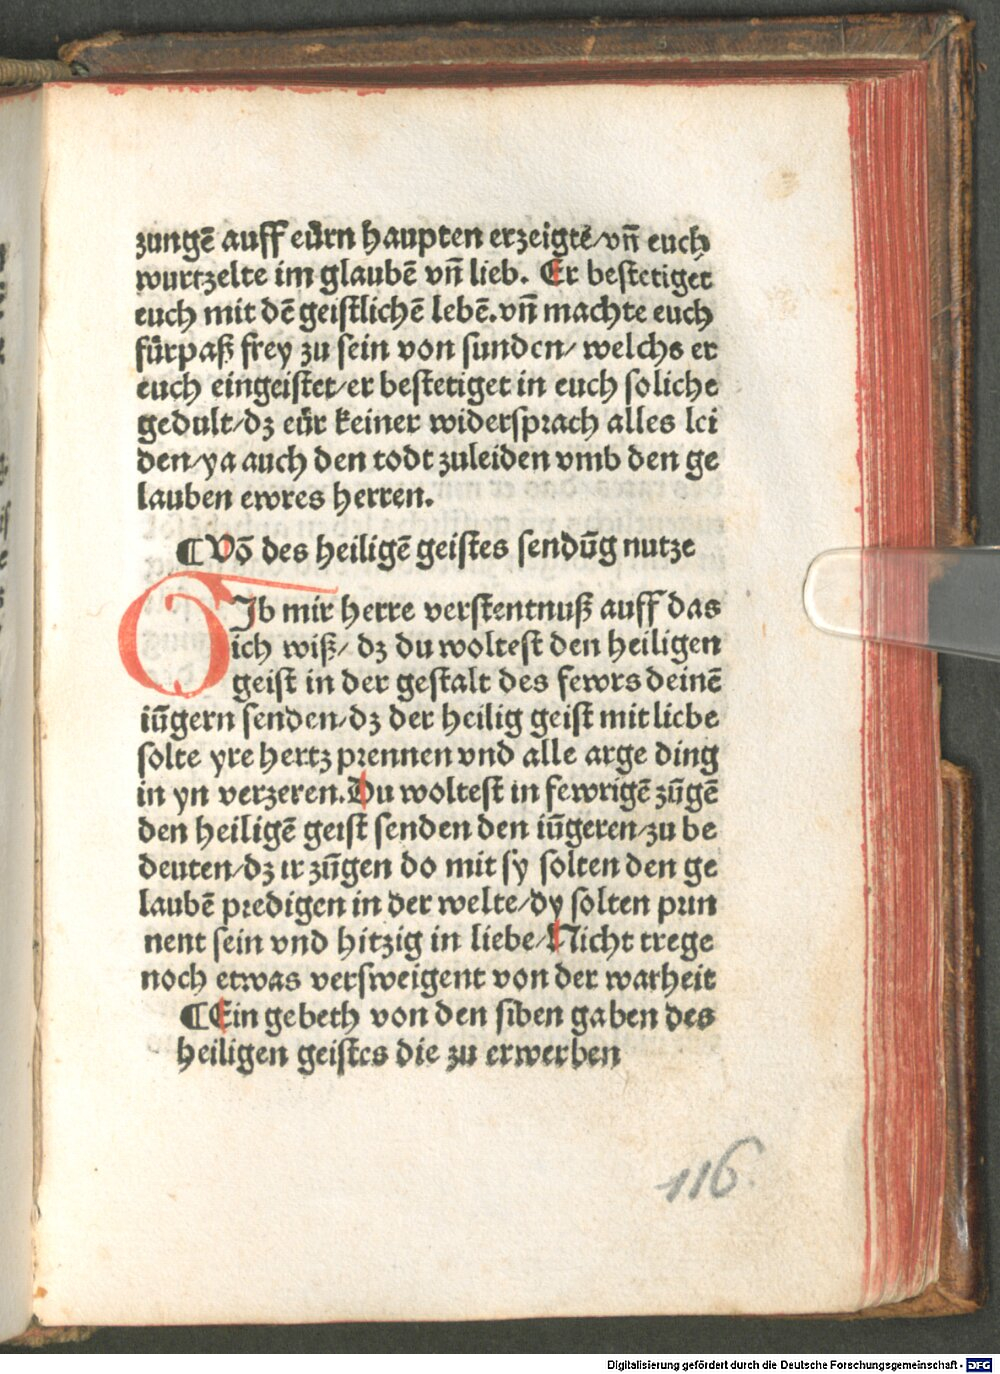 zungē auff eůrn haupten erzeigtē/vn̄ euch
wurtzelte im glaubē vn̄ lieb. Er bestetiget
euch mit dē geistlichē lebē.vn̄ machte euch
fürpaß frey zu sein von sunden/ welchs er
euch eingeistet/er bestetiget in euch soliche
gedult/dz eůr keiner widersprach alles lei
den/ya auch den todt zuleiden vmb den ge
lauben ewres herren.
¶ Vō des heiligē geistes sendūg nutze
GIb mir herre verstentnuß auff das
ich wiß/ dz du woltest den heiligen
geist in der gestalt des fewrs deinē
iūgern senden/dz der heilig geist mit liebe
solte yre hertz prennen vnd alle arge ding
in yn verzeren.Du woltest in fewrigē zūgē
den heiligē geist senden den iūgeren/zu be
deuten/dz ir zūgen do mit sy solten den ge
laubē predigen in der welte/dy solten prin
nent sein vnd hitzig in liebe/Nicht trege
noch etwas versweigent von der warheit
¶ Ein gebeth von den siben gaben des
heiligen geistes die zu erwerben
116.
Digitalisierung gefördert durch die Deutsche Forschungsgemeinschaft - DFG